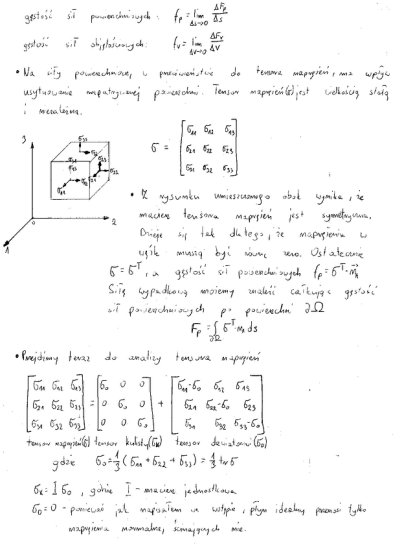 gęstość sił powierzchniowych: f_p = lim_{ΔS→0} ΔF_p/ΔS
gęstość sił objętościowych: f_v = lim_{ΔV→0} ΔF_v/ΔV
• Na siły powierzchniowe, w przeciwieństwie do tensora naprężeń, ma wpływ
usytuowanie rozpatrywanej powierzchni. Tensor naprężeń(σ) jest wielkością stałą
i niezależną.
3
σ = [σ11 σ12 σ13
σ21 σ22 σ23
σ31 σ32 σ33]
σ33
σ22
2
1
• Z rysunku umieszczonego obok wynika, że
macierz tensora naprężeń jest symetryczna.
Dzieje się tak dlatego, że naprężenia w
węźle muszą być równe zero. Ostatecznie
σ = σ^T, a gęstość sił powierzchniowych f_p = σ^T·n
Siłę wypadkową możemy znaleść całkując gęstość
sił powierzchniowych po powierzchni ∂Ω
F_p = ∫_{∂Ω} σ^T·n ds
• Przejdźmy teraz do analizy tensora naprężeń
[σ11 σ12 σ13] = [σ0 0 0] + [σ11-σ0 σ12 σ13]
[σ21 σ22 σ23] [0 σ0 0] [σ21 σ22-σ0 σ23]
[σ31 σ32 σ33] [0 0 σ0] [σ31 σ32 σ33-σ0]
tensor naprężeń(σ) tensor kulisty(σk) tensor dewiatora(σD)
gdzie σ0 = 1/3 (σ11 + σ22 + σ33) = 1/3 tr σ
σk = I σ0, gdzie I - macierz jednostkowa
σD = 0 - ponieważ jak napisałem we wstępie, płyn idealny przenosi tylko
naprężenia normalne, ścinających nie.